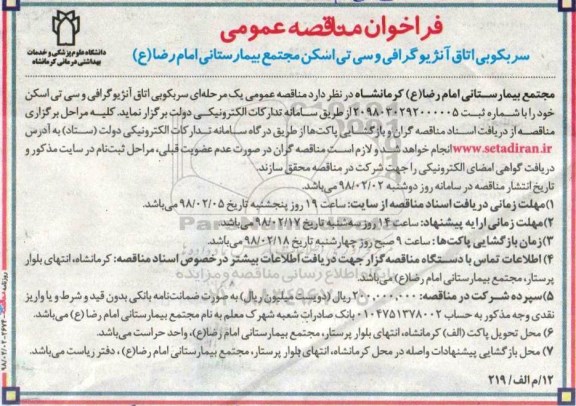 فراخوان مناقصه عمومی
سربکوبی اتاق آنژیوگرافی و سی تی اسکن مجتمع بیمارستانی امام رضا (ع)
دانشگاه علوم پزشکی و خدمات
بهداشتی درمانی کرمانشاه
مجتمع بیمارستانی امام رضا(ع) کرمانشاه در نظر دارد مناقصه عمومی یک مرحله‌ای سربکوبی اتاق آنژیوگرافی و سی تی اسکن
خود را با شماره ثبت ۲۰۹۸۰۳۰۲۹۲۰۰۰۰۰۵ از طریق سامانه تدارکات الکترونیکی دولت برگزار نماید. کلیه مراحل برگزاری
مناقصه از دریافت اسناد مناقصه گران و بازگشایی پاکت‌ها از طریق درگاه سامانه تدارکات الکترونیکی دولت (ستاد) به آدرس
www.setadiran.ir انجام خواهد شد و لازم است مناقصه گران در صورت عدم عضویت قبلی، مراحل ثبت‌نام در سایت مذکور و
دریافت گواهی امضای الکترونیکی را جهت شرکت در مناقصه محقق سازند.
تاریخ انتشار مناقصه در سامانه روز دوشنبه ۹۸/۰۲/۰۲ می‌باشد.
۱) مهلت زمانی دریافت اسناد مناقصه از سایت: ساعت ۱۹ روز پنجشنبه تاریخ ۹۸/۰۲/۰۵ می‌باشد.
۲) مهلت زمانی ارایه پیشنهاد: ساعت ۱۴ روز سه‌شنبه تاریخ ۹۸/۰۲/۱۷ می‌باشد.
۳) زمان بازگشایی پاکت‌ها: ساعت ۹ صبح روز چهارشنبه تاریخ ۹۸/۰۲/۱۸ می‌باشد.
۴) اطلاعات تماس با دستگاه مناقصه گزار جهت دریافت اطلاعات بیشتر در خصوص اسناد مناقصه: کرمانشاه، انتهای بلوار
پرستار، مجتمع بیمارستانی امام رضا(ع) می‌باشد.
۵) سپرده شرکت در مناقصه: ۲۰۰,۰۰۰,۰۰۰ ریال (دویست میلیون ریال) به صورت ضمانت‌نامه بانکی بدون قید و شرط و یا واریز
نقدی وجه مذکور به حساب ۰۱۰۴۷۵۱۳۷۸۰۰۲ بانک صادرات شعبه شهرک معلم به نام مجتمع بیمارستانی امام رضا (ع) می‌باشد.
۶) محل تحویل پاکت (الف) کرمانشاه، انتهای بلوار پرستار، مجتمع بیمارستانی امام رضا(ع)، واحد حراست می‌باشد.
۷) محل بازگشایی پیشنهادات واصله در محل کرمانشاه، انتهای بلوار پرستار، مجتمع بیمارستانی امام رضا(ع)، دفتر ریاست می‌باشد.
۱۲/م الف/ ۲۱۹